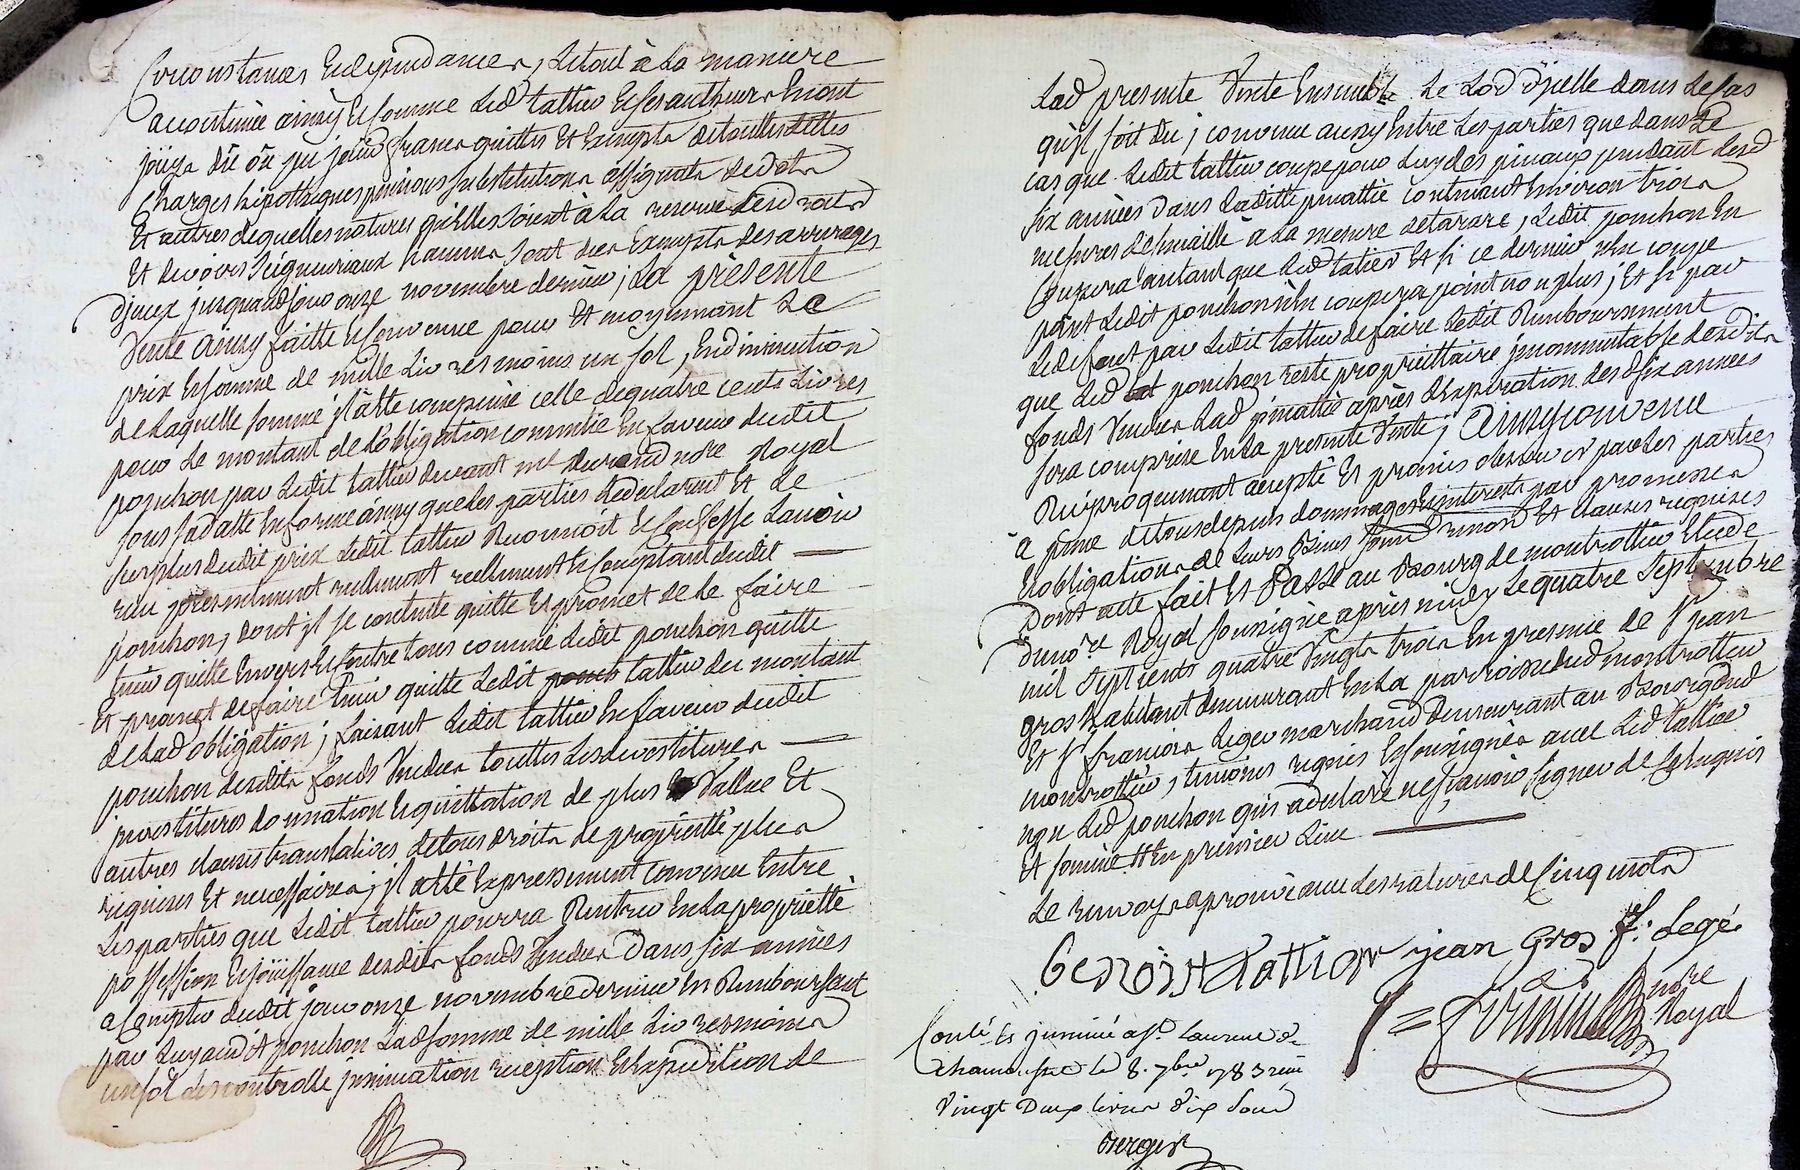 Circonstances Et dependances, Letout à La maniere
accoutumée ainsy Et comme Led tattier Et ses autheurs En ont
joüy dü ou pu jouir francs quittes Et Exempts detouttes dettes
Charges hipotheques pensions substitutions assignats dedots
Et autres dequelles natures quelles soient à La reserve desd droits
Et devoirs seigneuriaux Lesquels sont dus Exempts des arrerages
d'jceux jusquaudjour onze novembre dernier ; La présente
Vente ainsy faitte Et convenue pour Et moyennant Le
prix Et somme de mille Livres moins un sol, En diminution
de Laquelle somme jl àété compensé celle dequatre cents Livres
pour Le montant de L'obligation commise En faveur dudit
ponchon par Ledit tattier devant me durand nore Royal
sous sadatte En forme ainsy queles parties Ledeclarent Et Le
surplus dudit prix Ledit tattier Reconnoit Et Confesse L'avoir
reçu presentement reellement Et Comptant dudit
ponchon, dont jl se contente quitte Et promet de Le faire
tenir quitte Envers Et Contre tous comme Ledit ponchon quitte
Et promet de faire tenir quitte Ledit tattier du montant
de Lad obligation ; faisant Ledit tattier En faveur dudit
ponchon desdits fonds Vendus touttes Les devestitures
jnvestitures donnation Et quittation de plus Vallue Et
autres clauses translatives detous droits de proprieté plus
requises Et necessaires ; jl àété Expressement Convenu Entre
Les parties que Ledit tattier pourra Rentrer En La proprieté
possession Et joüissance desdits fonds Vendus Dans six années
a Compter dudit jour onze novembre dernier En Remboursant
par Luy aud ponchon Ladsomme de mille Livres moins
un sol Lecontrolle jnsinuation reception Et Expedition de
Lad presente Vente Ensemble Le Lod d'jcelle dans Le Cas
qu'jl soit du ; convenu aussy Entre Les parties que dans Le
cas que Ledit tattier coupe pour Luy des pinaux pendant Lesd
six années Dans Laditte pinattée contenant Environ trois
mesures semaille à La mesure detarare, Ledit ponchon En
Coupera autant que Led tatier Et si ce dernier n'En coupe
point Ledit ponchon n'En coupera point non plus ; Et si par
Ledefaut par Ledit tattier defaire Ledit Remboursement
que Led ponchon reste proprietaire jncommutable desdits
fonds Vendus Lad pinattée après L'Expiration des d six années
sera comprise En La presente Vente ; Ainsy convenu
Reciproquement accepté Et promis observer par Les parties
à peine detous depens dommages Et interets par promesses
Et obligations de Leurs Biens Et clauses requises
Dont acte fait Et Passé au Bourg de montrottier Etude
du nore Royal soussigné après midy Le quatre Septembre
mil sept cents quatre Vingts trois En presence de Sr jean
gros habitant demeurant En La parroisse dud montrottier
Et Sr francois Leger marchand demeurant au Bourg dud
montrottier, temoins requis Et soussignés avec Led tattier
non Led ponchon qui a declaré nesçavoir signer de Ce Enquis
Et sommé En premier Lieu
Le renvoy approuvé avec Les ratures de Cinq mots
Benoist Tattier jean Gros f. Legé
nore Royal
Conté Et jnsinué a St Laurent de
chamousset Le 8. 7bre 1783 reçu
Vingt Deux livres dix sous